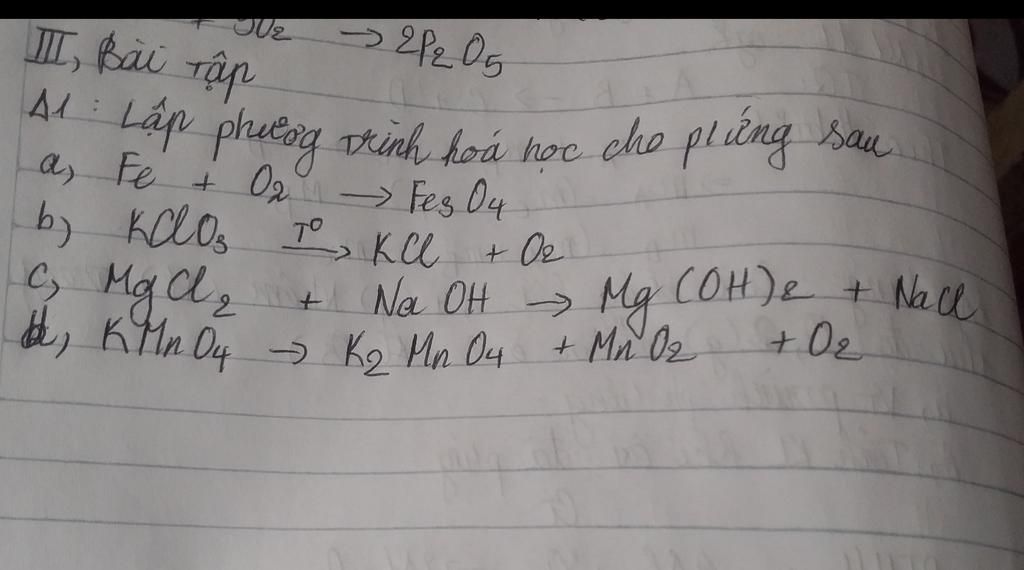 + 5O2 → 2P2O5
III, Bài tập
Δ1: Lập phương trình hoá học cho pứng sau
a, Fe + O2 → Fe3O4
b) KClO3 T° → KCl + O2
c, MgCl2 + NaOH → Mg(OH)2 + NaCl
d, KMnO4 → K2MnO4 + MnO2 + O2